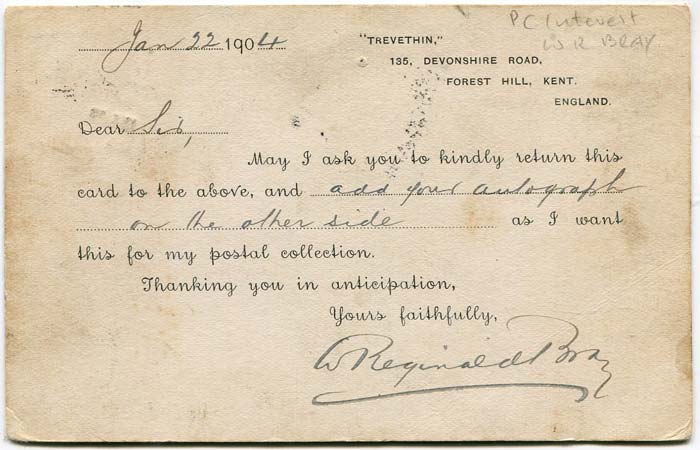 PC Interest
W R BRAY
Jan 22 1904
"TREVETHIN,"
135, DEVONSHIRE ROAD,
FOREST HILL, KENT.
ENGLAND.
Dear Sir,
May I ask you to kindly return this
card to the above, and add your autograph
on the other side as I want
this for my postal collection.
Thanking you in anticipation,
Yours faithfully,
W Reginald Bray